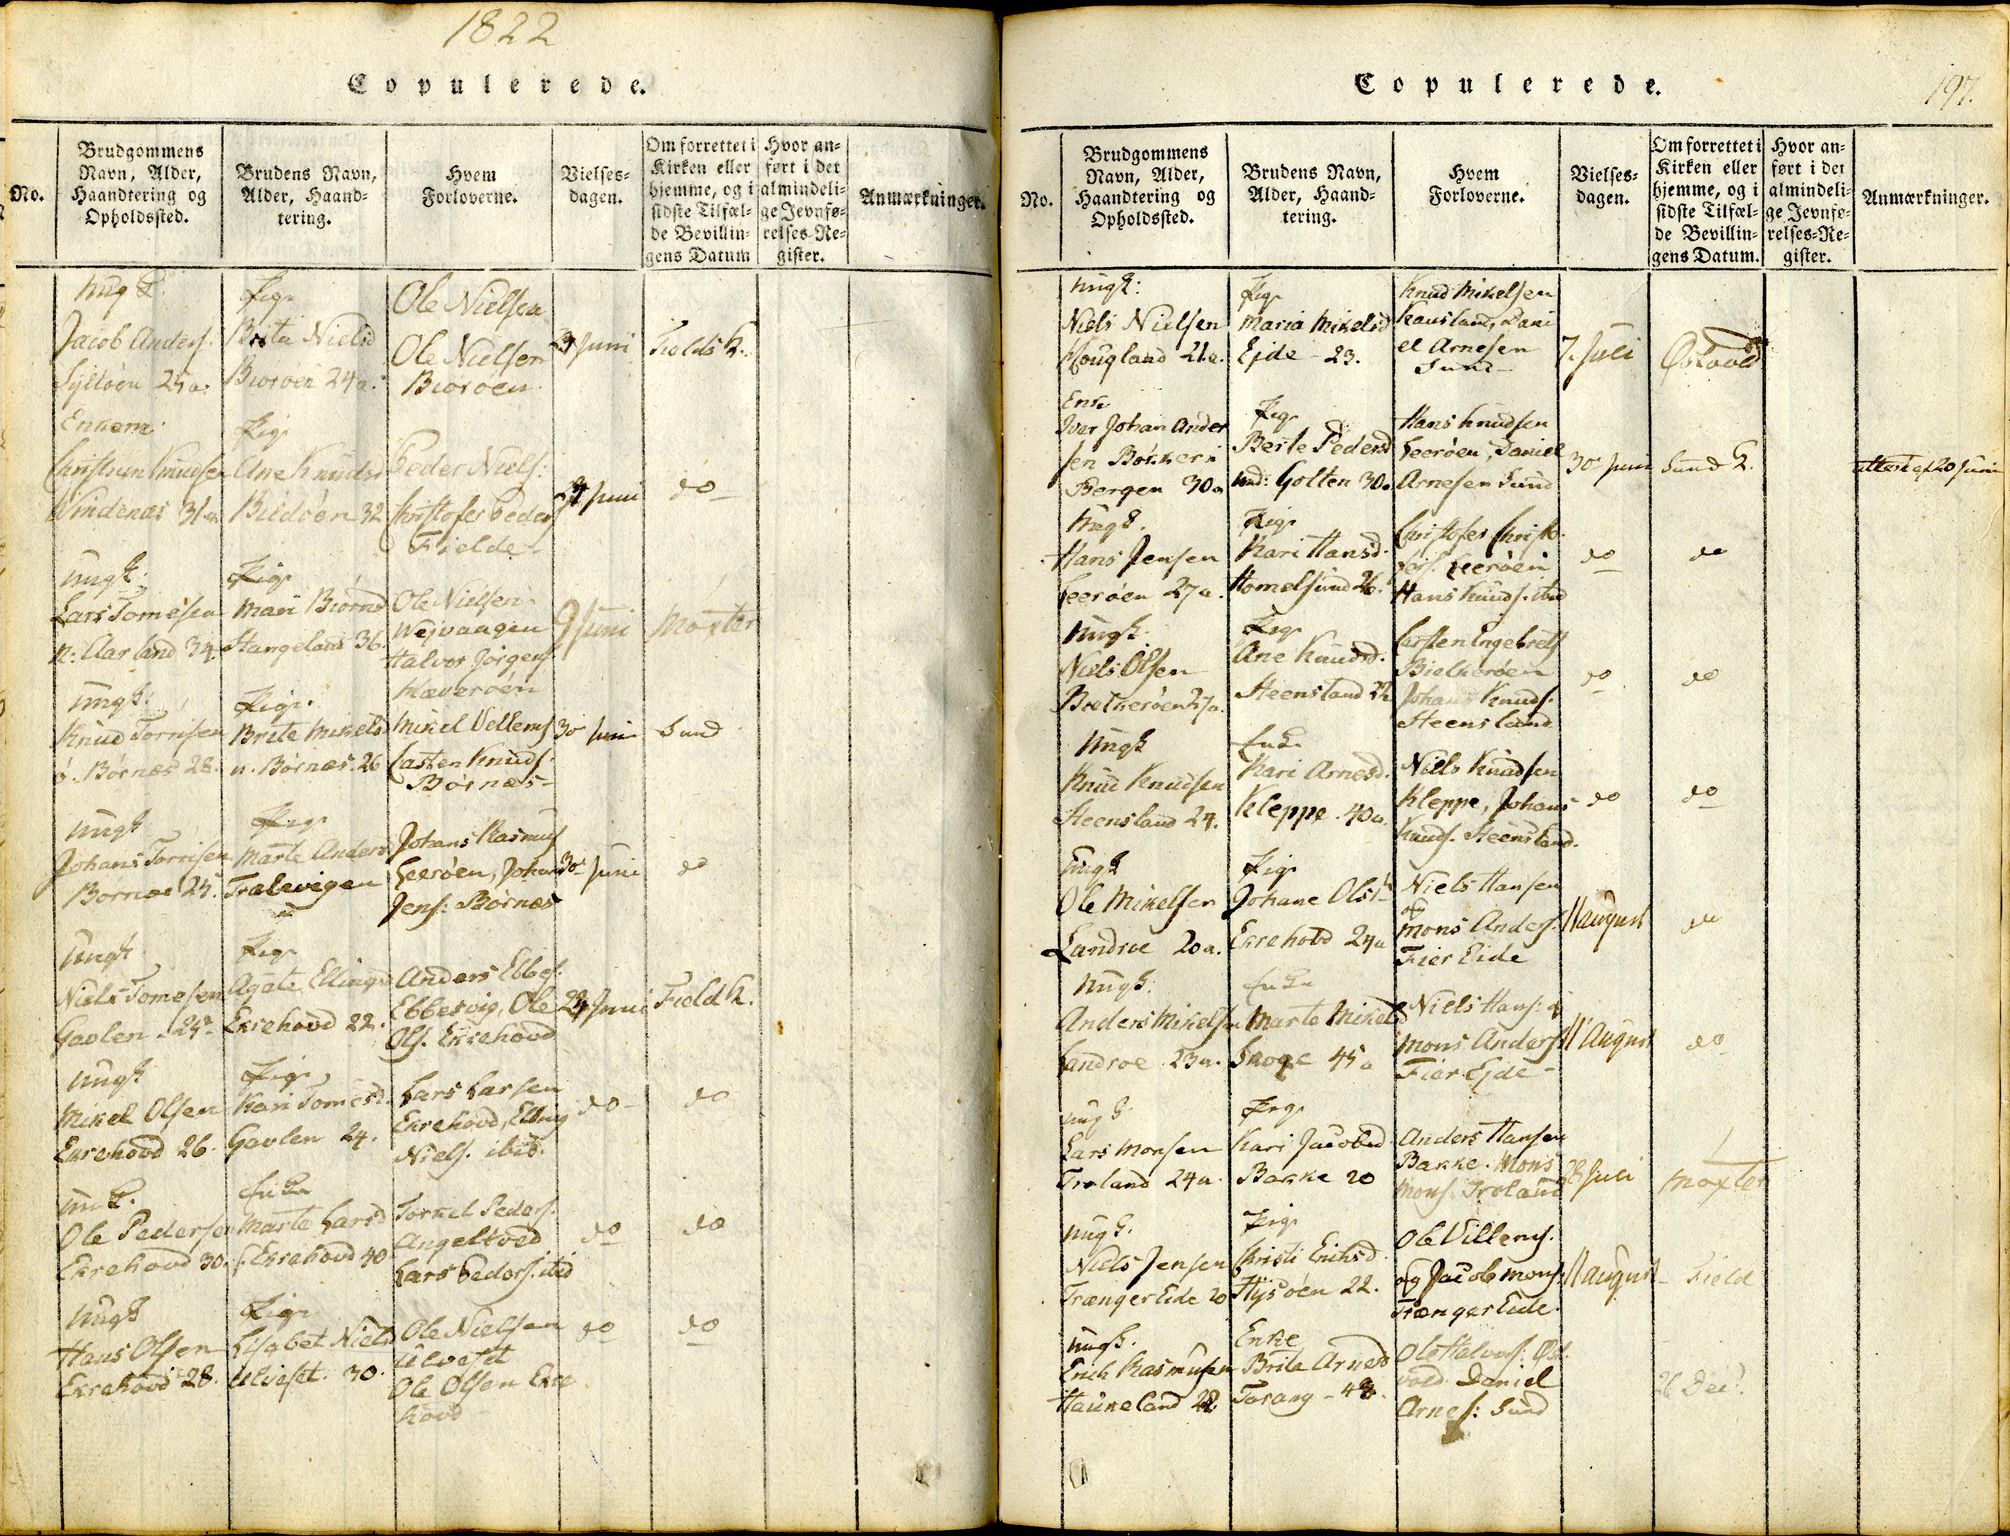 1822
Copulerede.
No.
Brudgommens Navn, Alder, Haandtering og Opholdssted.
Brudens Navn, Alder, Haandtering.
Hvem Forloverne.
Vielsesdagen.
Om forrettet i Kirken eller hjemme, og i sidste Tilfælde Bevillingens Datum
Hvor anført i det almindelige Jevnførelses-Register.
Anmærkninger.
ungk
Jacob Anders.
Syltøen 25 a.
Pige
Brita Nielsd
Biorøen 24 a.
Ole Nielsen
Ole Nielsen
Biorøen
Juni
Fields K.
Enkem
Christen Knudsen
Vindenæs 31 a.
Pige
Ane Knudsd
Bildøen 32
Peder Niels:
Christofer Peders
Fielde
Juni
do
ungk.
Lars Tomesen
n: Aarland 34.
Pige
Mari Biørnsd
Hangeland 36.
Ole Nielsen
Wejvaagen
Halvor Jörgens.
Kleverøen
9 Juni
Moxter
ungk.
Knud Torrisen
ö. Börnæs 28.
Pige
Brite Mikelsd
n. Börnæs. 26
Mikel Vellems
Casten Knuds.
Börnæs
30 Juni
Sund
ungk
Johans Torrisen
Bornæ 25.
Pige
Marte Andersd
Tralevigen
Johans Rasmus
Leerøen, Johans
Jens: Börnæs
30 Juni
do
ungk
Niels Tomesen
Gavlen 24
Pige
Agate Ellingsd
Ekrehovd 22.
Anders Ebbes.
Ebbesvig, Ole
Ols. Ekrehovd
24 Juni
Field K.
ungk
Mikel Olsen
Ekrehovd 26.
Pige
Kari Tomesd.
Gavlen 24.
Lars Larsen
Ekrehovd, Elling
Niels. ibid.
do
do
un k.
Ole Pedersen
Ekrehovd 30.
Enke
Marte Larsd
Ekrehovd 40
Torkel Peders.
Angeltved
Lars Peders. ibid
do
do
ungk
Hans Olsen
Ekrehovd 28.
Pige
Lisabet Nielsd
Ulveset. 30.
Ole Nielsen
Ulveset
Ole Olsen Ekre
hovd
do
do
Copulerede.
197.
No.
Brudgommens Navn, Alder, Haandtering og Opholdssted.
Brudens Navn, Alder, Haandtering.
Hvem Forloverne.
Vielsesdagen.
Om forrettet i Kirken eller hjemme, og i sidste Tilfælde Bevillingens Datum.
Hvor anført i det almindelige Jevnførelses-Register.
Anmærkninger.
ungk:
Niels Nielsen
Hougland 21 a.
Pige
Maria Mikelsd
Ejde - 23.
Knud Mikelsen
Kausland, Dani
el Arnesen
Sund
7. Juli
Enk.
Iver Johan Ander
sen Bökker i
Bergen 30 a
Pige
Berte Pedersd
und: Golten 30.
Hans Knudsen
Leerøen, Daniel
Arnesen Sund
30 Juni
Sund K.
attest af 20 Juni
ungk.
Hans Jensen
Leerøen 27 a.
Pige
Kari Hansd.
Homelsund 26.
Christofer Christo
fers. Leerøen
Hans Knuds. ibid
do
do
ungk.
Niels Olsen
Bielkerøen 27 a.
Pige
Ane Knudsd.
Steensland 22
Carsten Engebrets
Bielkerøen
Johans Knuds.
Steensland
do
do
ungk
Knud Knudsen
Steensland 24.
Enke
Kari Arnesd.
Kleppe. 40 a.
Niels Knudsen
Kleppe, Johans
Knuds. Steensland.
do
do
ungk
Ole Mikelsen
Landroe 20 a.
Pige
Johane Olsd
Ekrehovd 24 a
Niels Hansen
og
Mons Anders.
Fier Eide
11 august
do
ungk.
Anders Mikelsen
Landroe 23 a.
Enke
Marte Mikelsd
Skoge 45 a
Niels Hans: og
Mons Anders.
Fier Ejde
11 August
do
ungk.
Lars Monsen
Troland 24 a.
Pige
Kari Jacobsd
Bakke 20
Anders Hansen
Bakke. Mons
Mons. Troland
28 Juli
Moxter
ungk.
Niels Jensen
Trænger Eide 20
Pige
Kristi Eriksd.
Hysøen 22.
Ole Villems.
og Jacob Mons.
Trænger Eide.
11 august
Field
ungk.
Erich Rasmusen
Haukeland 22
Enke
Brita Arnesd
Torang - 48.
Ole Halvors: Öst
vold Daniel
Arnes: Sund
26 Dec.